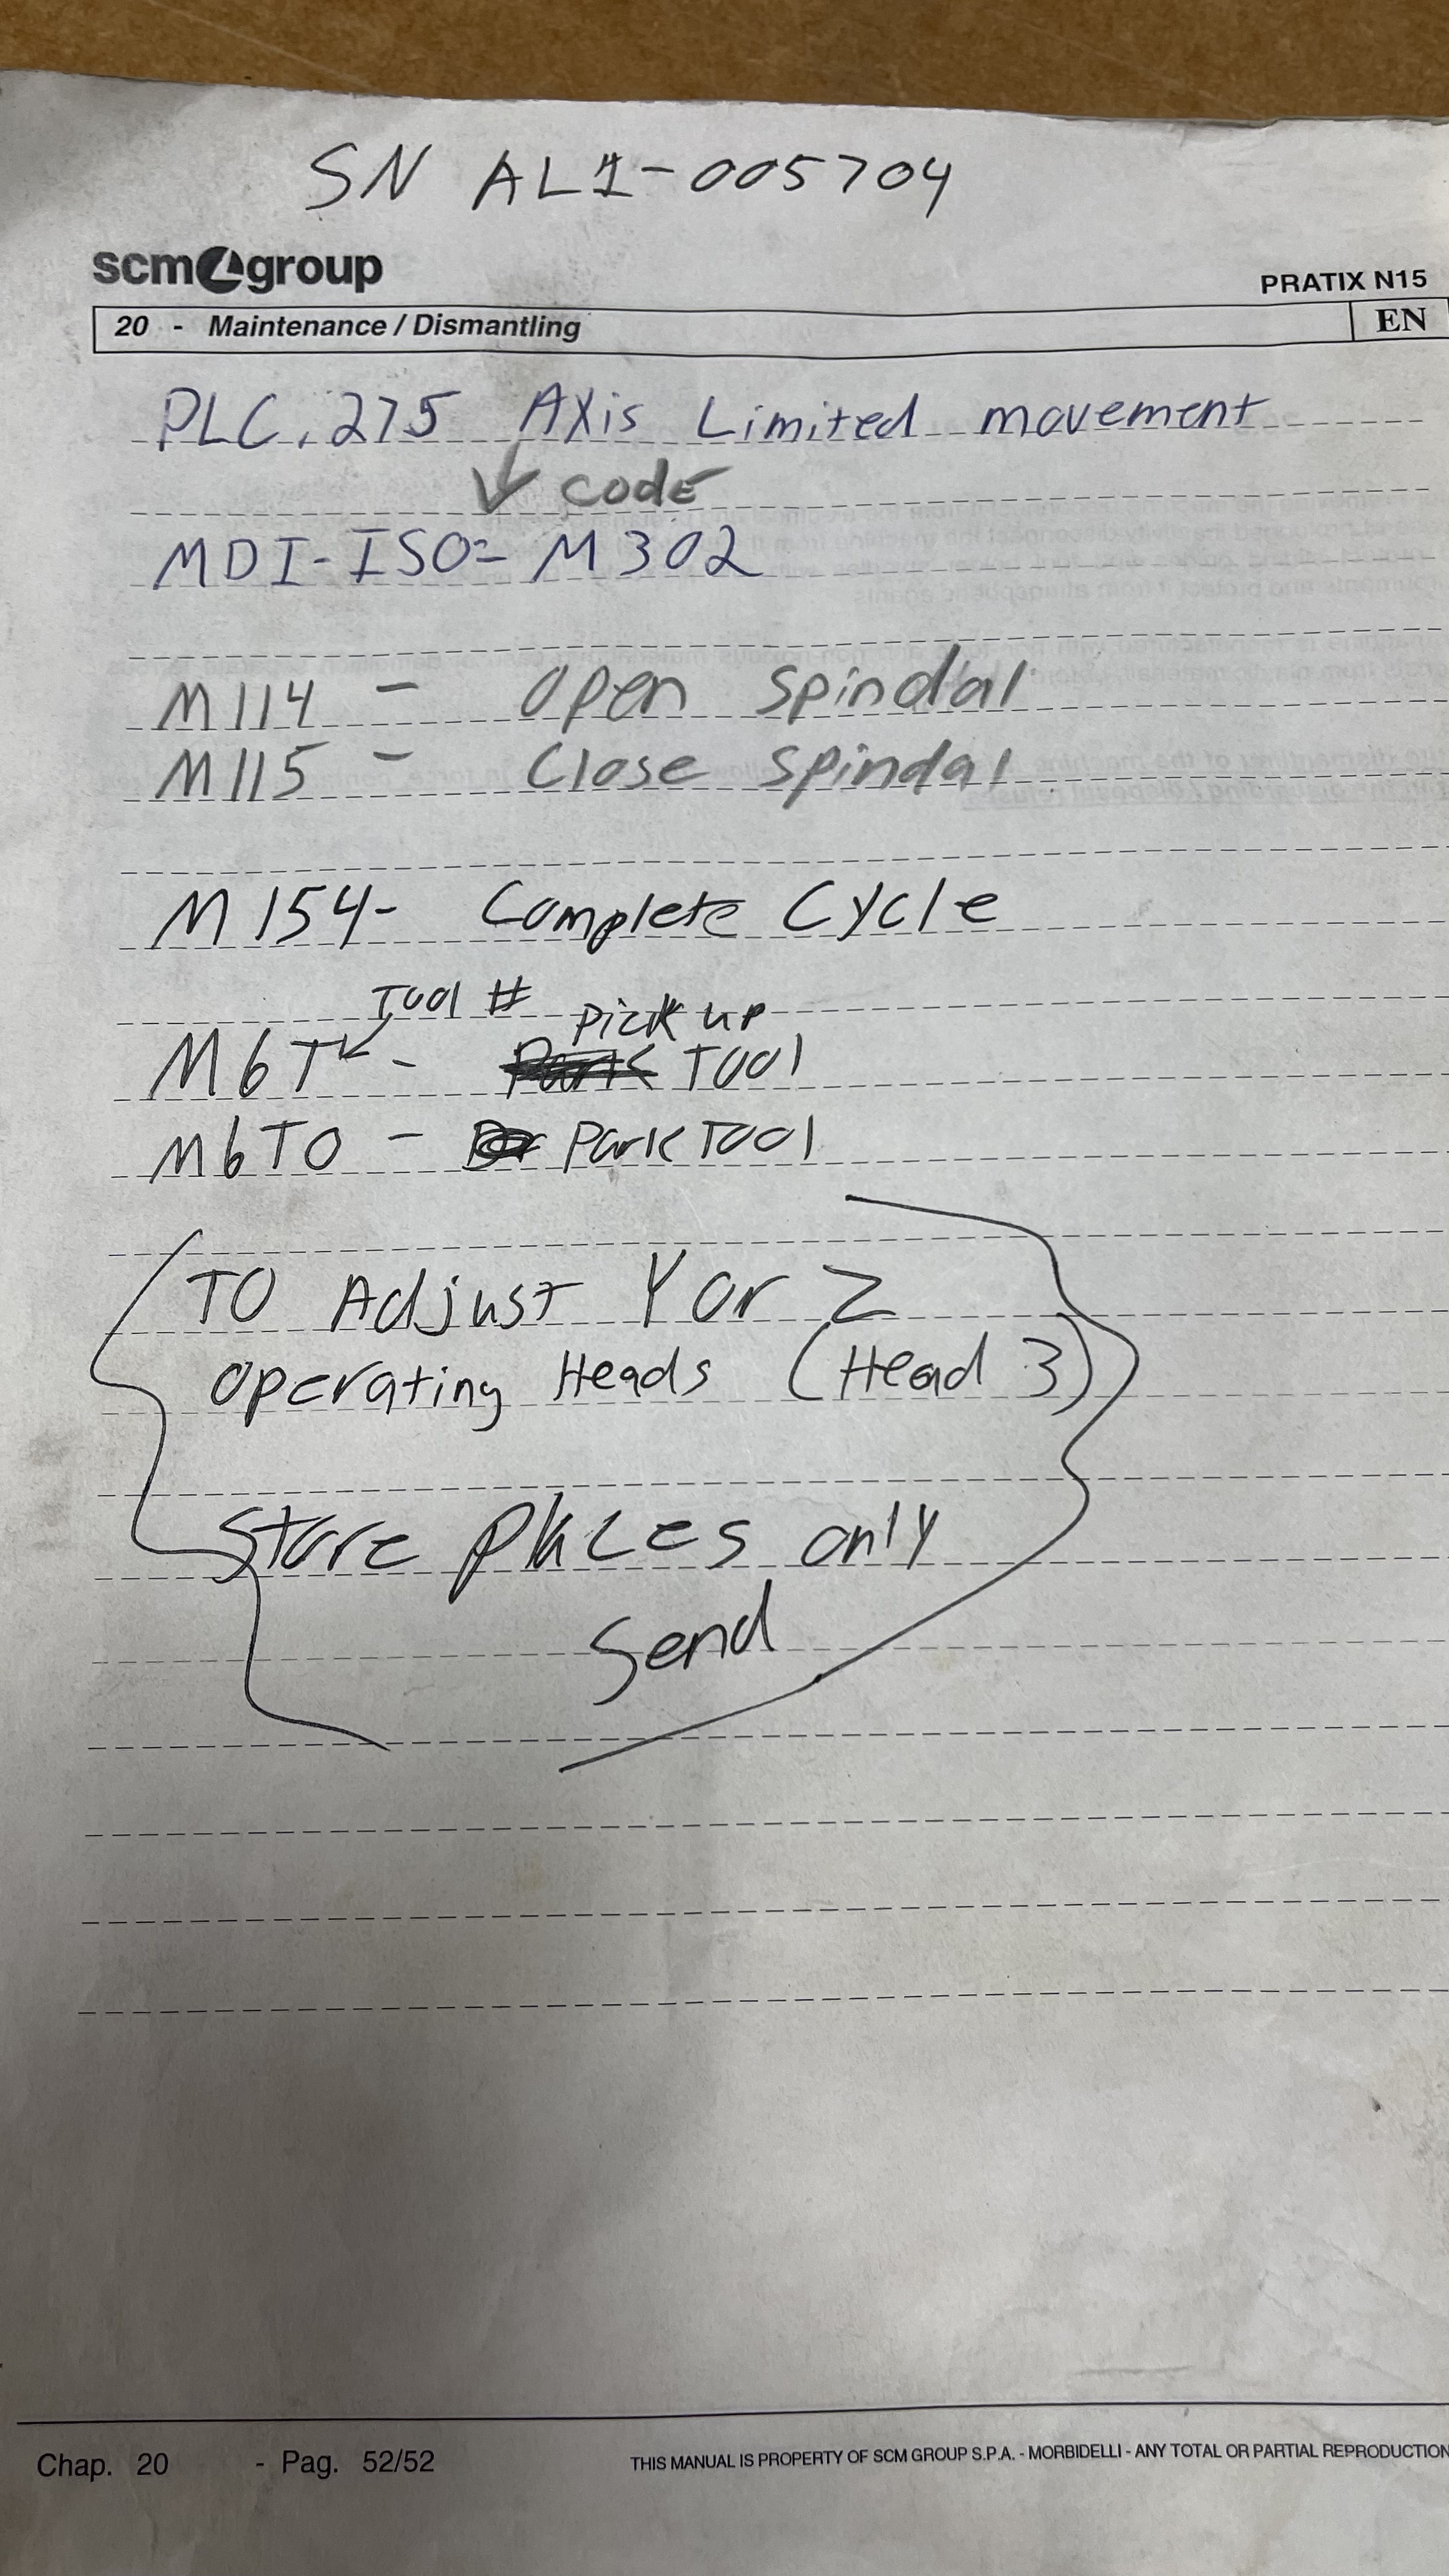 SN AL1-005704
scm group
PRATIX N15
20 - Maintenance / Dismantling
EN
PLC.275 Axis Limited movement
code
MDI-ISO= M302
M114 - Open Spindal
M115 - Close Spindal
M154- Complete Cycle
Tool #
Pick up
M6T - Tool
M6T0 - Park Tool
TO Adjust Y or Z
Operating Heads (Head 3)
Store places only
Send
Chap. 20 - Pag. 52/52
THIS MANUAL IS PROPERTY OF SCM GROUP S.P.A. - MORBIDELLI - ANY TOTAL OR PARTIAL REPRODUCTION